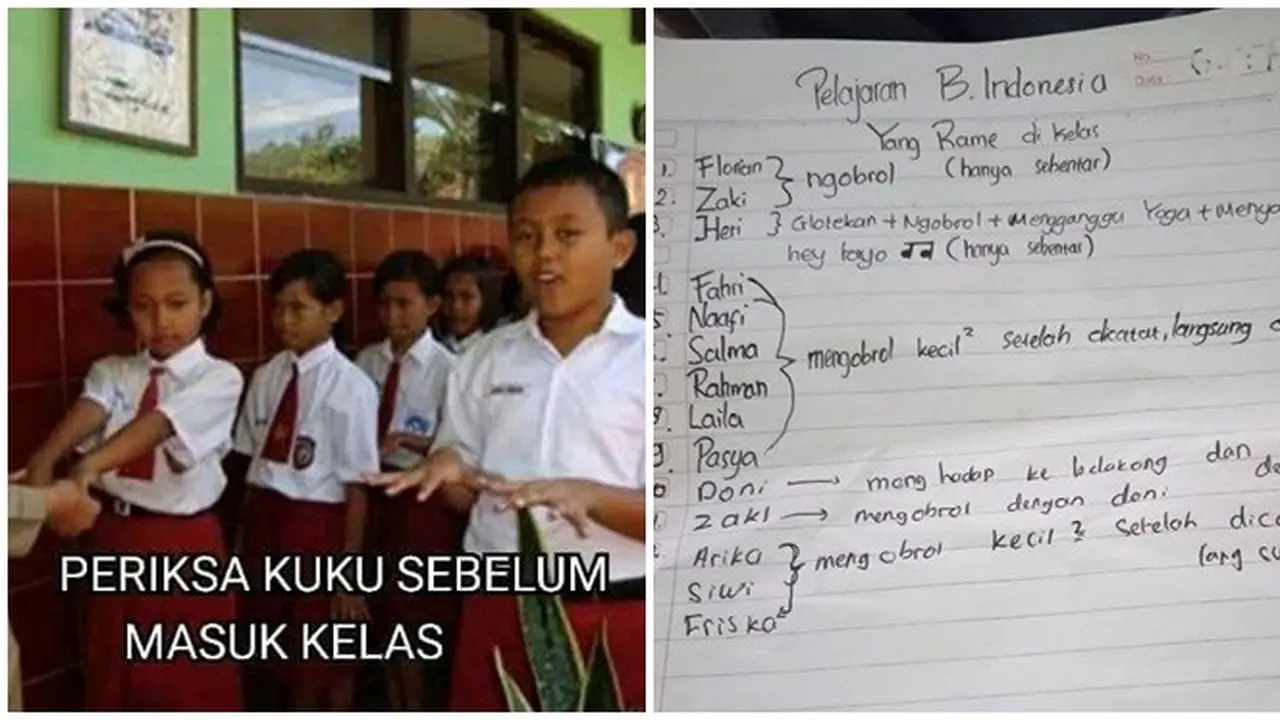 PERIKSA KUKU SEBELUM
MASUK KELAS
No.
Date:
Pelajaran B. Indonesia
Yang Rame di kelas
1. Florian
2. Zaki
ngobrol (hanya sebentar)
3. Heri } Glotekan + Ngobrol + Mengganggu Yoga +
hey tayo (hanya sebentar)
Fahri
Naafi
Salma
Rahman
Laila
Pasya
mengobrol kecil² setelah dicatat, langsung
Doni → menghadap ke belakang dan
Zaki → mengobrol dengan doni
Arika
Siwi
Friska
mengobrol kecil 2 setelah